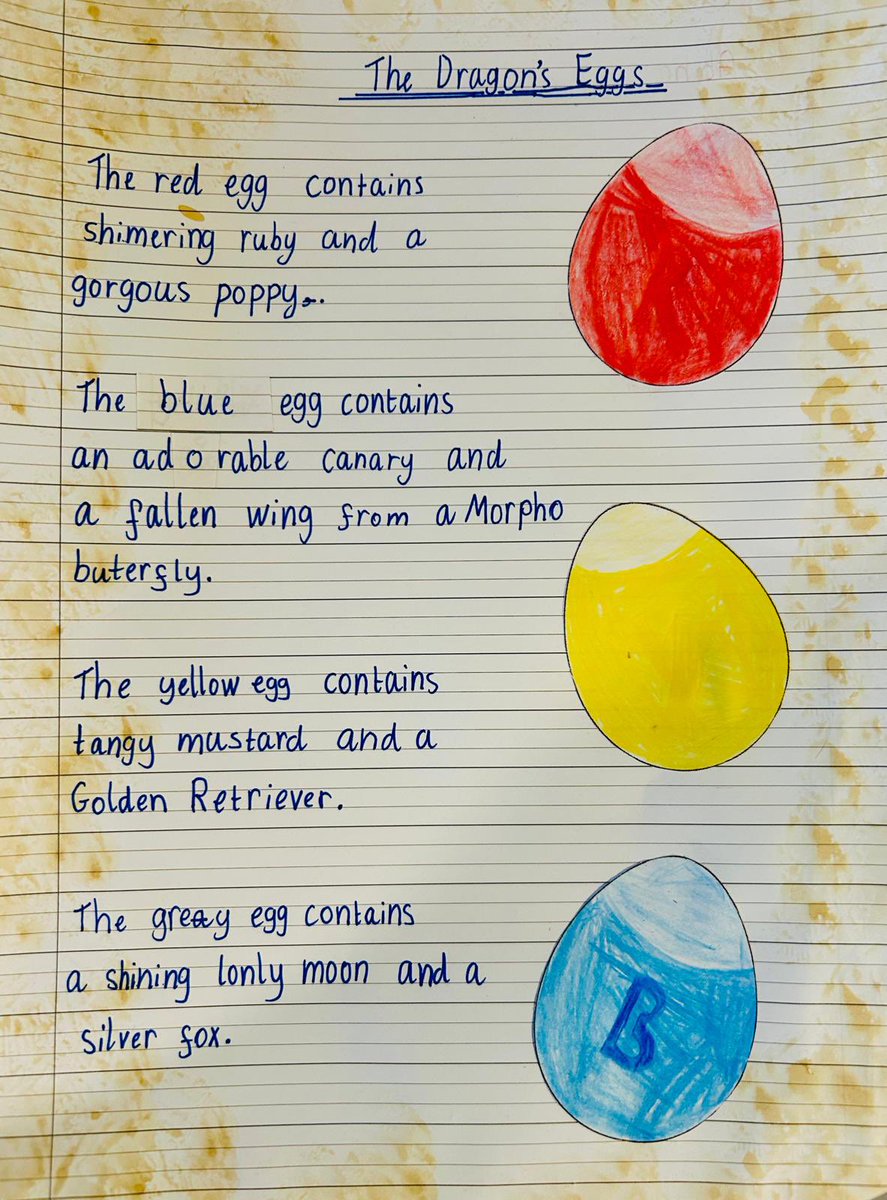 The Dragon's Eggs
The red egg contains
shimering ruby and a
gorgous poppy.
The blue egg contains
an adorable canary and
a fallen wing from a Morpho
buterfly.
The yellow egg contains
tangy mustard and a
Golden Retriever.
The grey egg contains
a shining lonly moon and a
silver fox.
B